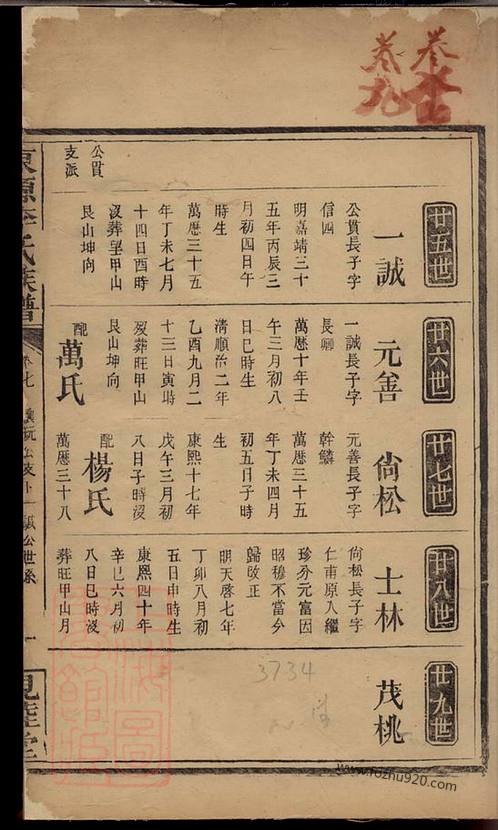 卷
卷九
公貫
支派
廿五世
一誠
公貫長子字
信四
明嘉靖三十
五年丙辰三
月初四日午
時生
萬曆三十五
年丁未七月
十四日酉時
沒葬呈甲山
艮山坤向
廿六世
元善
一誠長子字
長卿
萬曆十年壬
午三月初八
日巳時生
清順治二年
乙酉九月二
十三日寅時
歿葬旺甲山
艮山坤向
配
萬氏
廿七世
尙松
元善長子字
幹鱗
萬曆三十五
年丁未四月
初五日子時
生
康熙十七年
戊午三月初
八日子時沒
配
楊氏
萬曆三十八
廿八世
士林
尙松長子字
仁甫原入繼
珍分元富因
昭穆不當今
歸改正
明天啓七年
丁卯八月初
五日申時生
康熙四十年
辛巳六月初
八日巳時沒
葬旺甲山月
廿九世
茂桃
氏族譜
卷七
公支下
一誠公世系
一
3734
www.fozhu920.com